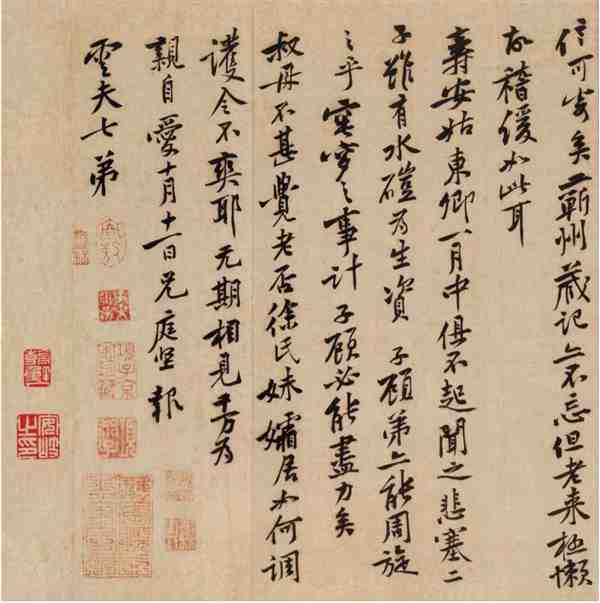 信可寄矣蘄州藏記亦不忘但老来極懶
故稽緩如此耳
壽安姑東卿一月中俱不起聞之悲塞二
子雖有水磑为生資子顧弟亦能周旋
之乎窀穸之事計子顧必能盡力矣
叔母不甚覺老否徐氏妹孀居如何調
護令不爽耶元期相見千万为
親自愛十月十一日兄庭堅報
雲夫七弟